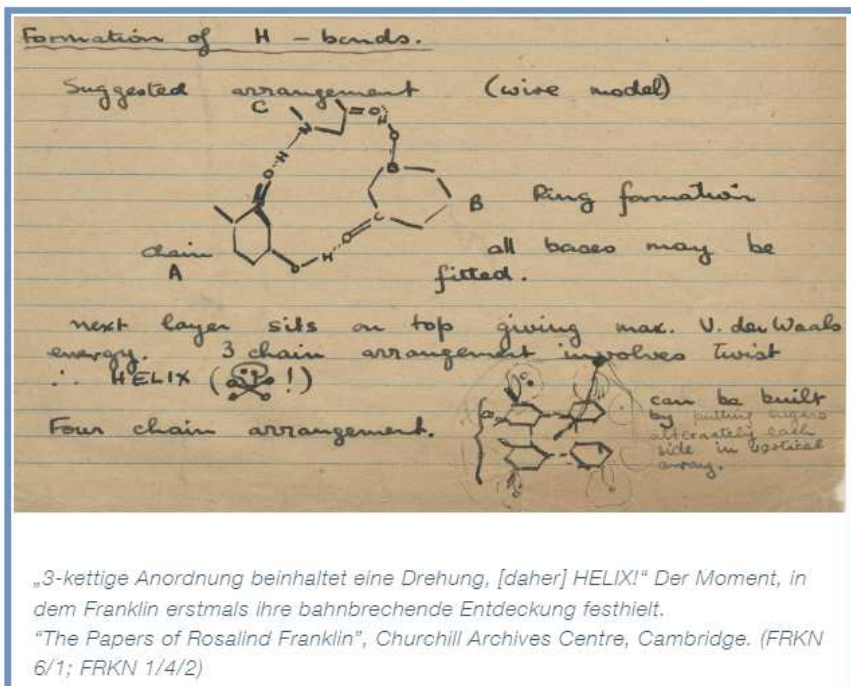 Formation of H - bonds.
Suggested arrangement (wire model)
C
=O
H
N
O
H
O
B
Ring formation
C
O
chain
A
O
H
all bases may be
fitted.
next layer sits on top giving max. V. der Waals
energy. 3 chain arrangement involves twist
∴ HELIX ( !)
Four chain arrangement.
can be built
by putting sugars
alternately each
side in vertical
array.
„3-kettige Anordnung beinhaltet eine Drehung, [daher] HELIX!“ Der Moment, in
dem Franklin erstmals ihre bahnbrechende Entdeckung festhielt.
“The Papers of Rosalind Franklin”, Churchill Archives Centre, Cambridge. (FRKN
6/1; FRKN 1/4/2)